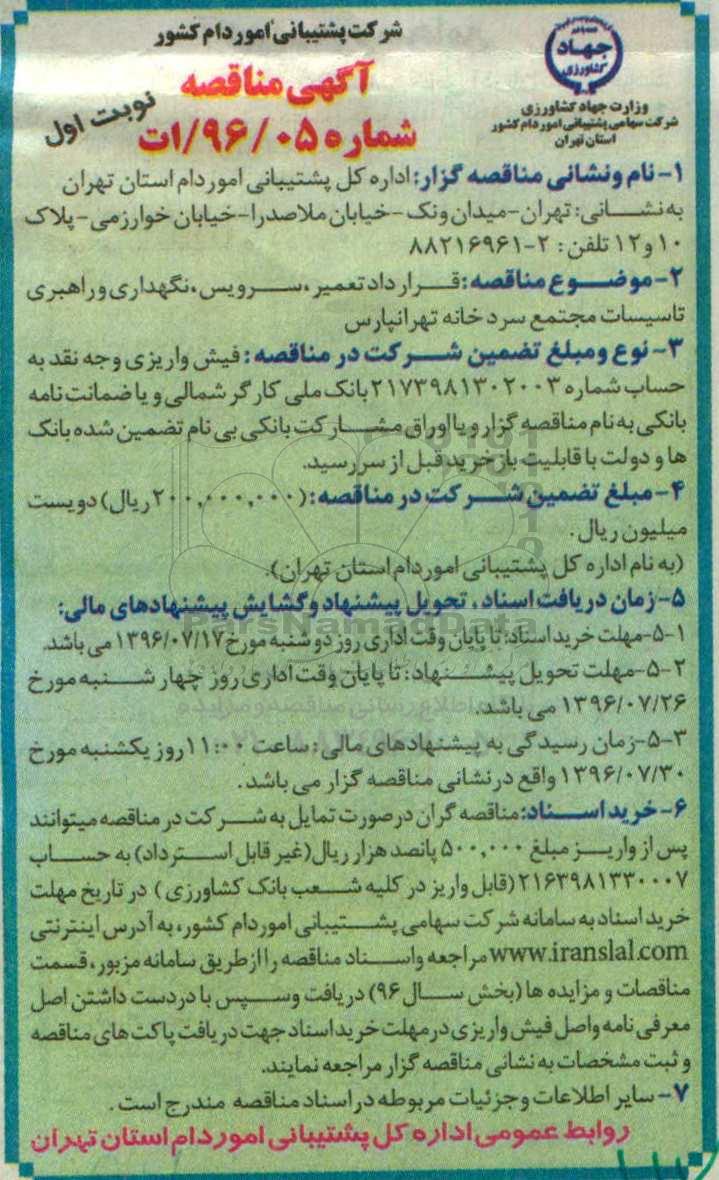 شرکت پشتیبانی امور دام کشور
جهاد
کشاورزی
وزارت جهاد کشاورزی
شرکت سهامی پشتیبانی امور دام کشور
استان تهران
آگهی مناقصه
شماره ۹۶/۰۵/ات
نوبت اول
۱-نام ونشانی مناقصه گزار: اداره کل پشتیبانی امور دام استان تهران
به نشانی: تهران-میدان ونک-خیابان ملاصدرا-خیابان خوارزمی-پلاک
۱۰ و ۱۲ تلفن: ۲-۸۸۲۱۶۹۶۱
۲-موضوع مناقصه: قرارداد تعمیر، سرویس، نگهداری و راهبری
تاسیسات مجتمع سردخانه تهرانپارس
۳-نوع ومبلغ تضمین شرکت در مناقصه: فیش واریزی وجه نقد به
حساب شماره ۲۱۷۳۹۸۱۳۰۲۰۰۳ بانک ملی کارگر شمالی و یا ضمانت نامه
بانکی به نام مناقصه گزار و یا اوراق مشارکت بانکی بی نام تضمین شده بانک
ها و دولت با قابلیت بازخرید قبل از سررسید.
۴-مبلغ تضمین شرکت در مناقصه: (۲۰۰,۰۰۰,۰۰۰ریال) دویست
میلیون ریال.
(به نام اداره کل پشتیبانی امور دام استان تهران).
۵-زمان دریافت اسناد، تحویل پیشنهاد وگشایش پیشنهادهای مالی:
۵-۱-مهلت خرید اسناد: تا پایان وقت اداری روز دوشنبه مورخ ۱۳۹۶/۰۷/۱۷ می باشد.
۵-۲-مهلت تحویل پیشنهاد: تا پایان وقت اداری روز چهارشنبه مورخ
۱۳۹۶/۰۷/۲۶ می باشد.
۵-۳-زمان رسیدگی به پیشنهادهای مالی: ساعت ۱۱:۰۰ روز یکشنبه مورخ
۱۳۹۶/۰۷/۳۰ واقع در نشانی مناقصه گزار می باشد.
۶-خرید اسناد: مناقصه گران درصورت تمایل به شرکت در مناقصه میتوانند
پس از واریز مبلغ ۵۰۰,۰۰۰ پانصد هزار ریال(غیر قابل استرداد) به حساب
۲۱۶۳۹۸۱۳۳۰۰۰۷ (قابل واریز در کلیه شعب بانک کشاورزی) در تاریخ مهلت
خرید اسناد به سامانه شرکت سهامی پشتیبانی امور دام کشور، به آدرس اینترنتی
www.iranslal.com مراجعه واسناد مناقصه را ازطریق سامانه مزبور، قسمت
مناقصات و مزایده ها (بخش سال ۹۶) دریافت وسپس با دردست داشتن اصل
معرفی نامه واصل فیش واریزی در مهلت خرید اسناد جهت دریافت پاکت های مناقصه
و ثبت مشخصات به نشانی مناقصه گزار مراجعه نمایند.
۷-سایر اطلاعات وجزئیات مربوطه در اسناد مناقصه مندرج است.
روابط عمومی اداره کل پشتیبانی امور دام استان تهران
ParsNamadData